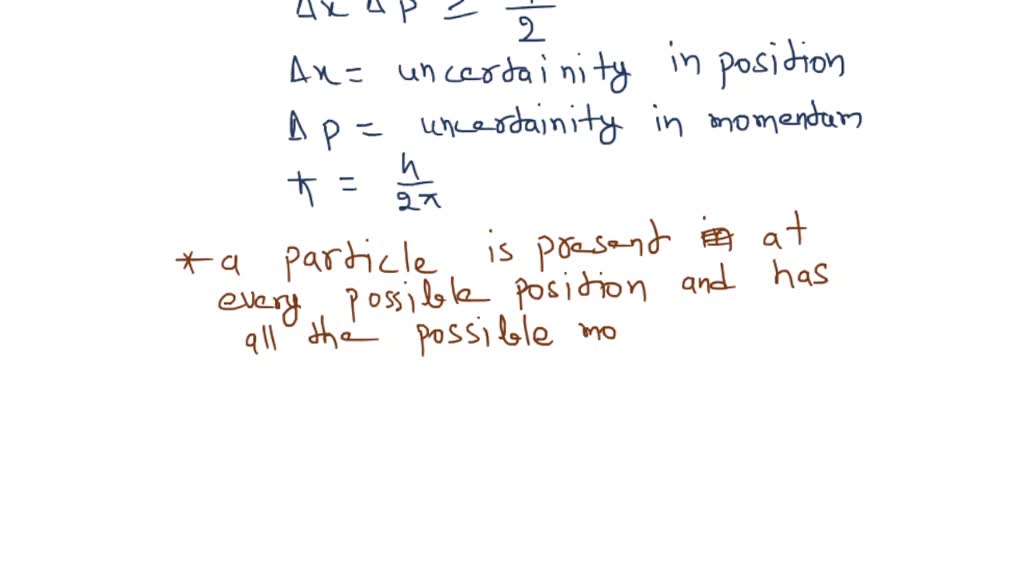 Δx Δp ≥ ħ/2
Δx = uncertainity in position
Δp = uncertainity in momentum
ħ = h/2π
* a particle is present at
every possible position and has
all the possible mo